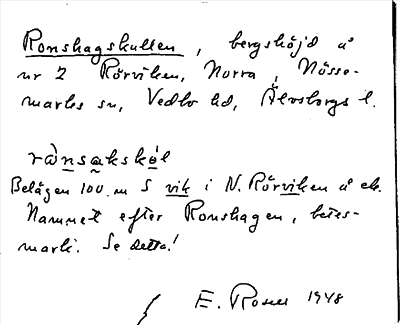 Ronshagskullen, bergshöjd å
nr 2 Rörviken, Norra, Nösse-
marks sn, Vedbo hd, Älvsborgs l.
rɷ̀nsakskɷ́l
Belägen 100 m S vik i N. Rörviken å eb.
Namnet efter Ronshagen, betes-
mark. Se detta!
E. Rosell 1948